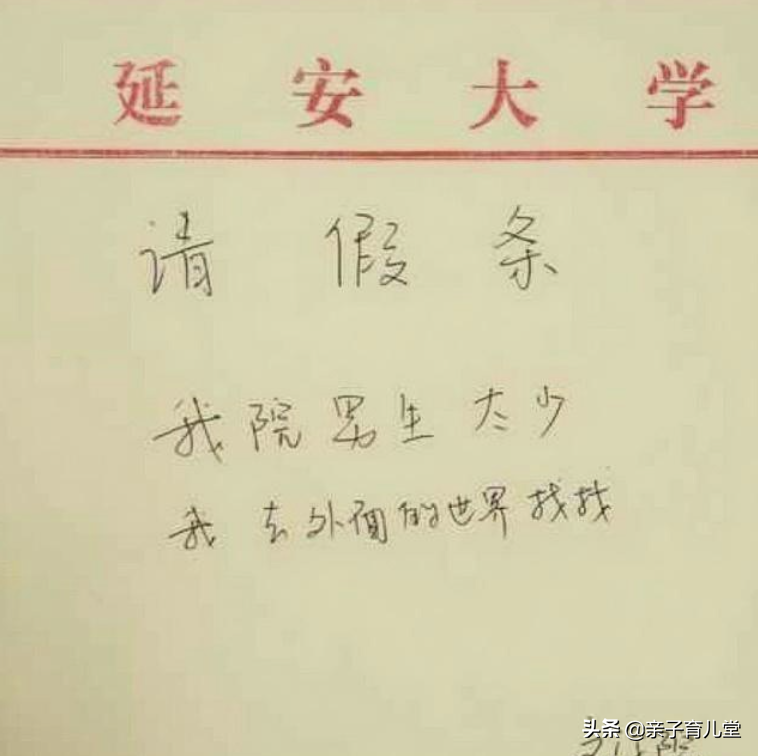 延安大学
请假条
我院男生太少
我去外面的世界找找
头条 @亲子育儿堂